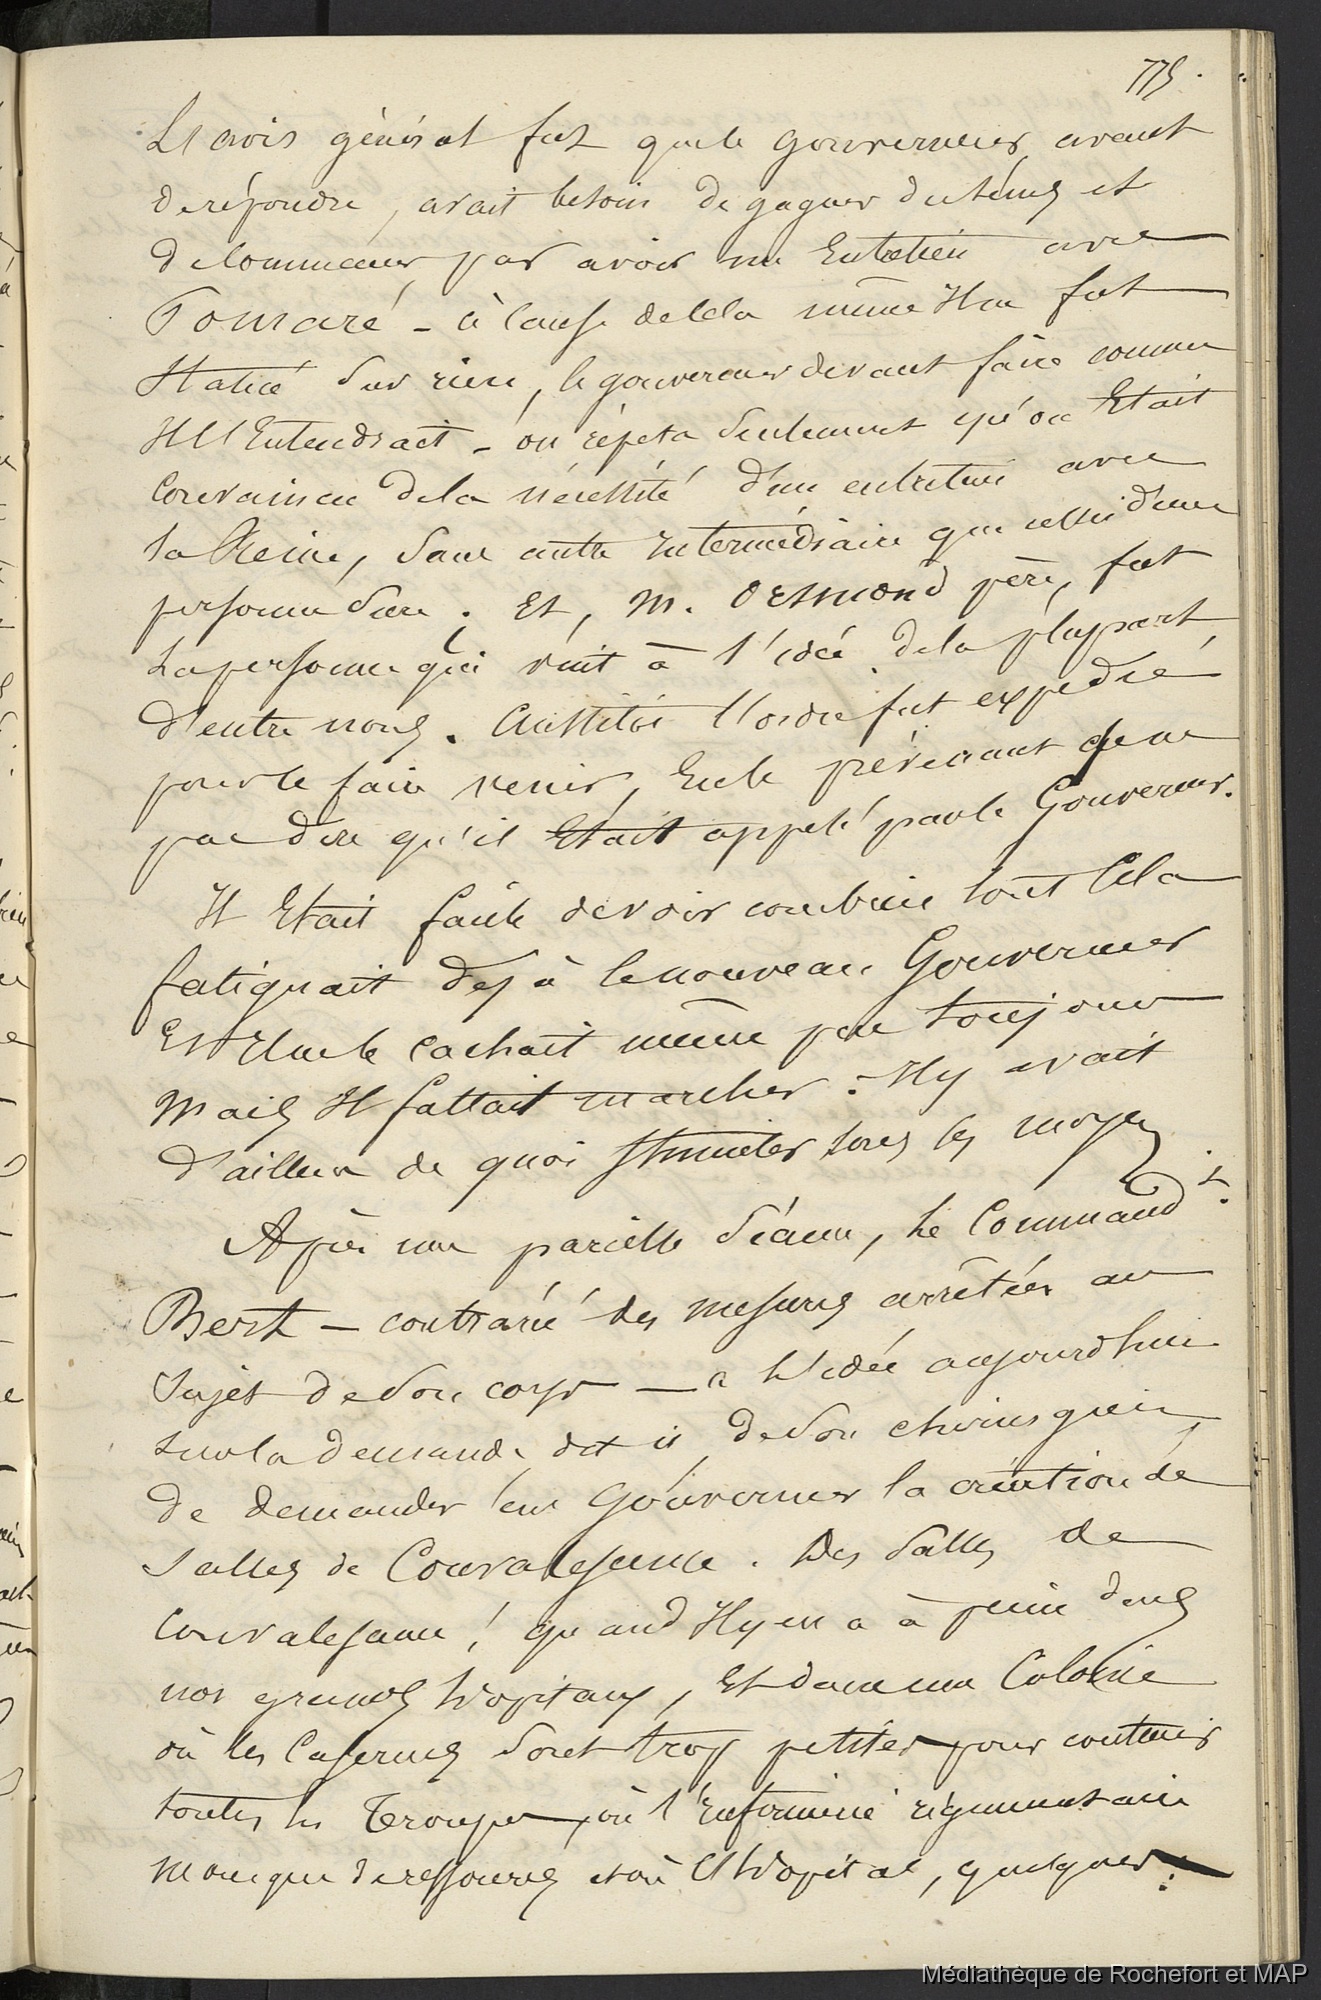 775.
L'avis général fut que le gouverneur, avant
de répondre, avait besoin de gagner du tems et
de commencer par avoir un Entretien avec
Pomaré - à cause de cela même Il ne fut
statué sur rien, le gouverneur devant faire comme
Il l'Entendrait - on répéta seulement qu'on Etait
convaincu de la nécessité d'un entretien avec
la Reine, sans autre Intermédiaire que celui d'une
personne sûre. Et, M. ORSMOND père, fut
la personne qui vint à l'idée de la plupart
d'entre nous. Aussitôt l'ordre fut expédié
pour le faire venir, En le prévenant de ne
pas dire qu'il Etait appelé par le Gouverneur.
Il Etait facile de voir combien tout Cela
fatiguait déjà le nouveau Gouverneur
Et Il ne le cachait même pas toujours
Mais Il fallait marcher : Il y avait
d'ailleurs de quoi stimuler tous les moyens
Après une pareille séance, le Command.t
Bert - contrarié des mesures arrêtées au
sujet de son corps - a l'Idée aujourd'hui
sur la demande, dit il, de son chirurgien,
de demander au Gouverneur la création de
salles de Convalescence. Des salles de
Convalescence ! quand Il y en a à peine dans
nos grands hôpitaux, Et dans une Colonie
où les Casernes sont trop petites pour contenir
toutes les Troupes, où l'Infirmerie régimentaire
manque de ressources et où l'hôpital, quelques
Médiathèque de Rochefort et MAP